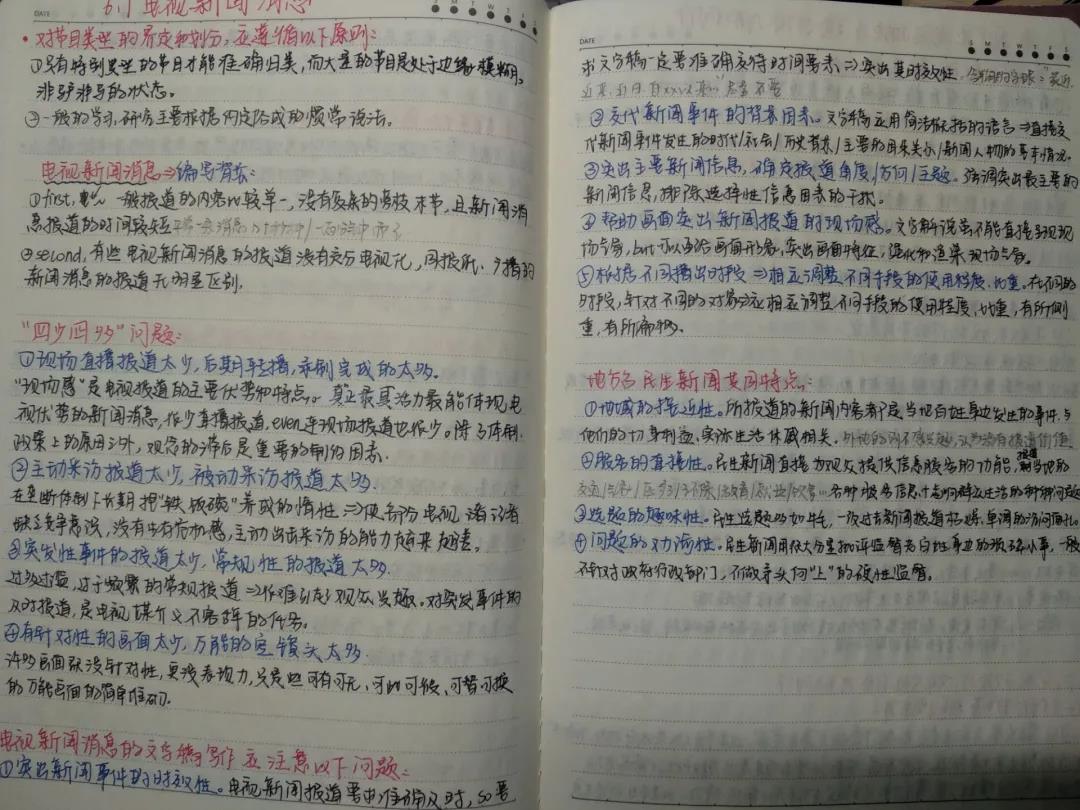 DATE
电视新闻消息
·对节目类型的界定和划分,应遵循以下原则:
①只有特别典型的节目才能准确归类,而大量的节目是处于边缘模糊、
非驴非马的状态。
②一般的学习、研究主要根据约定俗成的惯常说法。
电视新闻消息⇒编导背景:
①first, 一般报道的内容比较单一,没有复杂的旁枝末节,且新闻消
息报道的时间较短
②second,有些电视新闻消息的报道没有充分电视化,同报纸、广播的
新闻消息的报道无明显区别。
“四少四多”问题:
①现场直播报道太少,后期转播,录制完成的太多。
“现场感”是电视报道的主要优势和特点。真正最具活力最能体现电
视优势的新闻消息,很少直播报道,even连现场报道也很少。除了体制、
政策上的原因之外,观念的滞后是重要的制约因素。
②主动采访报道太少,被动采访报道太多.
在垄断体制下长期把“铁饭碗”养成的惰性⇒使部分电视记者
缺乏竞争意识,没有生存危机感,主动出击采访的能力越来越差。
③突发性事件的报道太少,常规性的报道太多.
过多过滥,过于频繁的常规报道⇒很难引起观众兴趣。对突发事件的
及时报道,是电视媒介义不容辞的任务。
④有针对性的画面太少,万能的空镜头太多.
许多画面既没针对性,更没表现力,只是些可有可无、可此可彼、可替可换
的万能画面的简单堆砌。
电视新闻消息的文字稿写作应注意以下问题:
①突出新闻事件的时效性。电视新闻报道要求准确及时,so要
DATE
求文字稿一定要准确交待时间要素⇒突出其时效性。
近来,近日,
②交代新闻事件的背景因素。文字稿应用简洁概括的语言⇒直接交
代新闻事件发生的时代/社会/历史背景/主要的因果关系/新闻人物的基本情况。
③突出主要新闻信息,确定报道角度/方向/主题。强调突出最主要的
新闻信息,排除选择性信息因素的干扰。
④帮助画面突出新闻报道的现场感。文字解说虽不能直接呈现现
场气氛,but可以通过画面形象,突出画面特征,强化和渲染现场气氛。
⑤根据不同播出时段⇒相应调整不同手段的使用程度、比重。在不同的
时段,针对不同的对象应相应调整不同手段的使用程度、比重,有所侧
重,有所偏移。
地方台民生新闻共同特点:
①地域的接近性。所报道的新闻内容都是当地百姓身边发生的事件,与
他们的切身利益、实际生活休戚相关。
②服务的直接性。民生新闻直接为观众提供信息服务的功能,当地的
交通/天气/医疗/环保/教育/就业/饮食…各种服务信息,
③选题的趣味性。民生选题多如牛毛,一改过去新闻报道枯燥、单调的访问面孔。
④问题的对症性。民生新闻用很大分量批评监督老百姓身边的琐碎小事,一般
不针对政府行政部门,不做矛头向“上”的硬性监督。